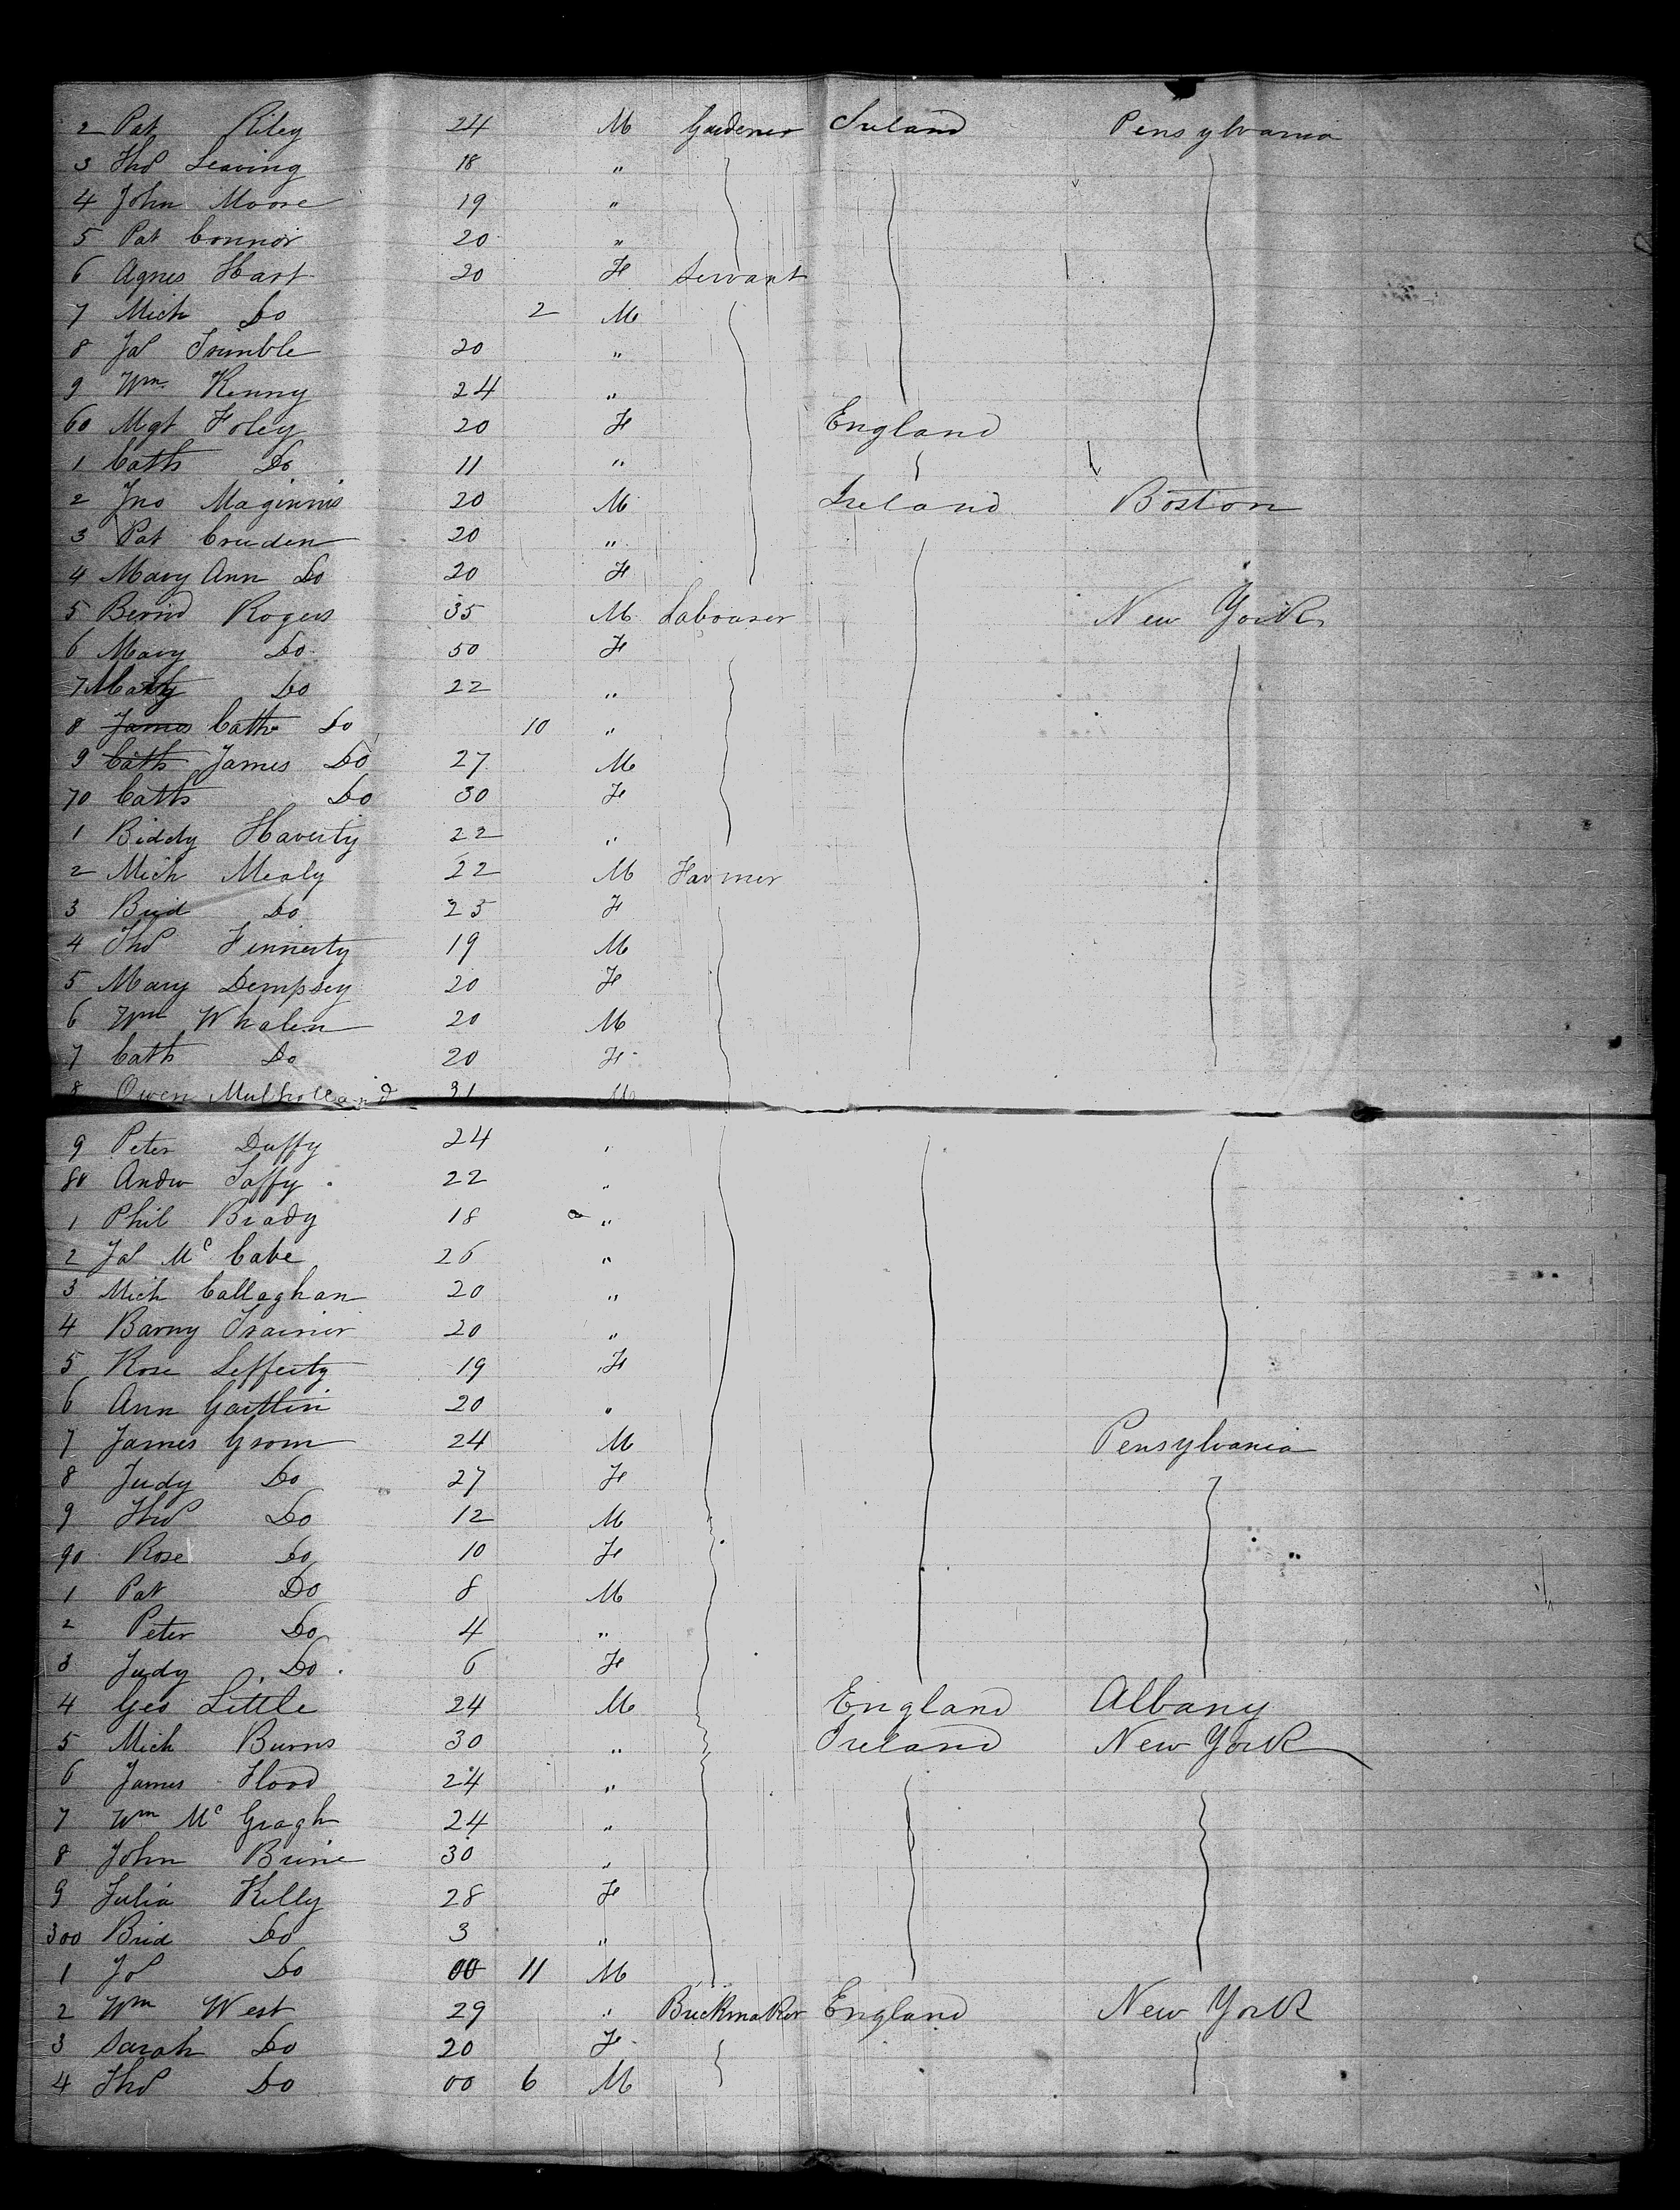 2 Pat Riley 24 M Gardener Ireland Pensylvania
3 Thos Leaving 18 "
4 John Moore 19 "
5 Pat Connor 20 "
6 Agnes Hart 20 F Servant
7 Mich Do 2 M
8 Jas Trimble 20 "
9 Wm Kenny 24 "
60 Mgt Foley 20 F England
1 Cath Do 11 "
2 Jno Maginnis 20 M Ireland Boston
3 Pat Cruden 20 "
4 Mary Ann Do 20 F
5 Bernd Rogers 35 M Labourer New York
6 Mary Do 50 F
7 Mary Do 22 "
8 James Cath Do 10 "
9 Cath James Do 27 M
70 Cath Do 30 F
1 Biddy Haverty 22 "
2 Mich Mealy 22 M Farmer
3 Brid Do 25 F
4 Thos Finnerty 19 M
5 Mary Dempsey 20 F
6 Wm Whalen 20 M
7 Cath Do 20 F
8 Owen Mulholland 31 M
9 Peter Duffy 24 "
80 Andw Taffy 22 "
1 Phil Brady 18 "
2 Jas Mc Cabe 26 "
3 Mich Callaghan 20 "
4 Barny Trainor 20 "
5 Rose Lefferty 19 F
6 Ann 20 "
7 James Grom 24 M Pensylvania
8 Judy Do 27 F
9 Thos Do 12 M
90 Rose Do 10 F
1 Pat Do 8 M
2 Peter Do 4 "
3 Judy Do 6 F
4 Geo Little 24 M England Albany
5 Mich Burns 30 " Ireland New York
6 James Flood 24 "
7 Wm Mc Gragh 24 "
8 John Brine 30 "
9 Julia Kelly 28 F
300 Brid Do 3 "
1 Jos Do 00 11 M
2 Wm West 29 " Brickmaker England New York
3 Sarah Do 20 F
4 Thos Do 00 6 M